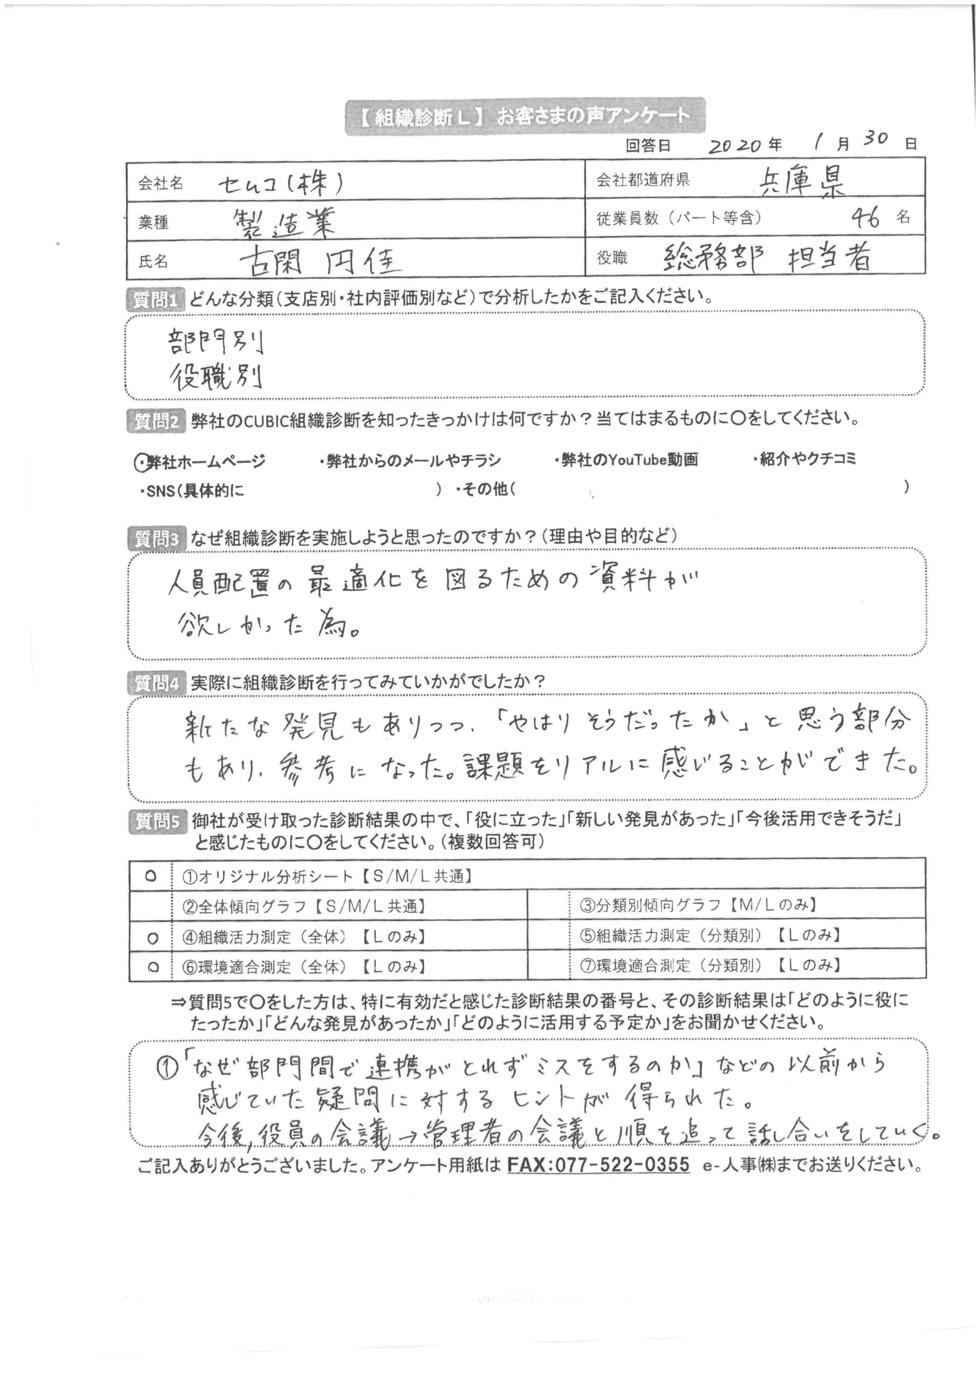 【組織診断L】お客さまの声アンケート
回答日 2020年 1月30日
会社名 セムコ(株) 会社都道府県 兵庫県
業種 製造業 従業員数(パート等含) 46名
氏名 古閑 円佳 役職 総務部 担当者
質問1 どんな分類(支店別・社内評価別など)で分析したかをご記入ください。
部門別
役職別
質問2 弊社のCUBIC組織診断を知ったきっかけは何ですか?当てはまるものに〇をしてください。
・弊社ホームページ ・弊社からのメールやチラシ ・弊社のYouTube動画 ・紹介やクチコミ
・SNS(具体的に ) ・その他( )
質問3 なぜ組織診断を実施しようと思ったのですか?(理由や目的など)
人員配置の最適化を図るための資料が
欲しかった為。
質問4 実際に組織診断を行ってみていかがでしたか?
新たな発見もありつつ、「やはりそうだったか」と思う部分
もあり、参考になった。課題をリアルに感じることができた。
質問5 御社が受け取った診断結果の中で、「役に立った」「新しい発見があった」「今後活用できそうだ」
と感じたものに〇をしてください。(複数回答可)
○ ①オリジナル分析シート【S/M/L共通】
②全体傾向グラフ【S/M/L共通】 ③分類別傾向グラフ【M/Lのみ】
○ ④組織活力測定(全体)【Lのみ】 ⑤組織活力測定(分類別)【Lのみ】
○ ⑥環境適合測定(全体)【Lのみ】 ⑦環境適合測定(分類別)【Lのみ】
⇒質問5で〇をした方は、特に有効だと感じた診断結果の番号と、その診断結果は「どのように役に
たったか」「どんな発見があったか」「どのように活用する予定か」をお聞かせください。
①「なぜ部門間で連携がとれずミスをするのか」などの以前から
感じていた疑問に対するヒントが得られた。
今後、役員の会議→管理者の会議と順を追って話し合いをしていく。
ご記入ありがとうございました。アンケート用紙は FAX:077-522-0355 e-人事㈱までお送りください。